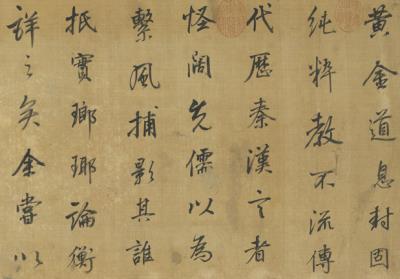 黄金道息封固
純粹教不流傳
代歷秦漢言者
怪闊先儒以為
繫風捕影其誰
抵實瑯琊論衡
詳之矣余當以